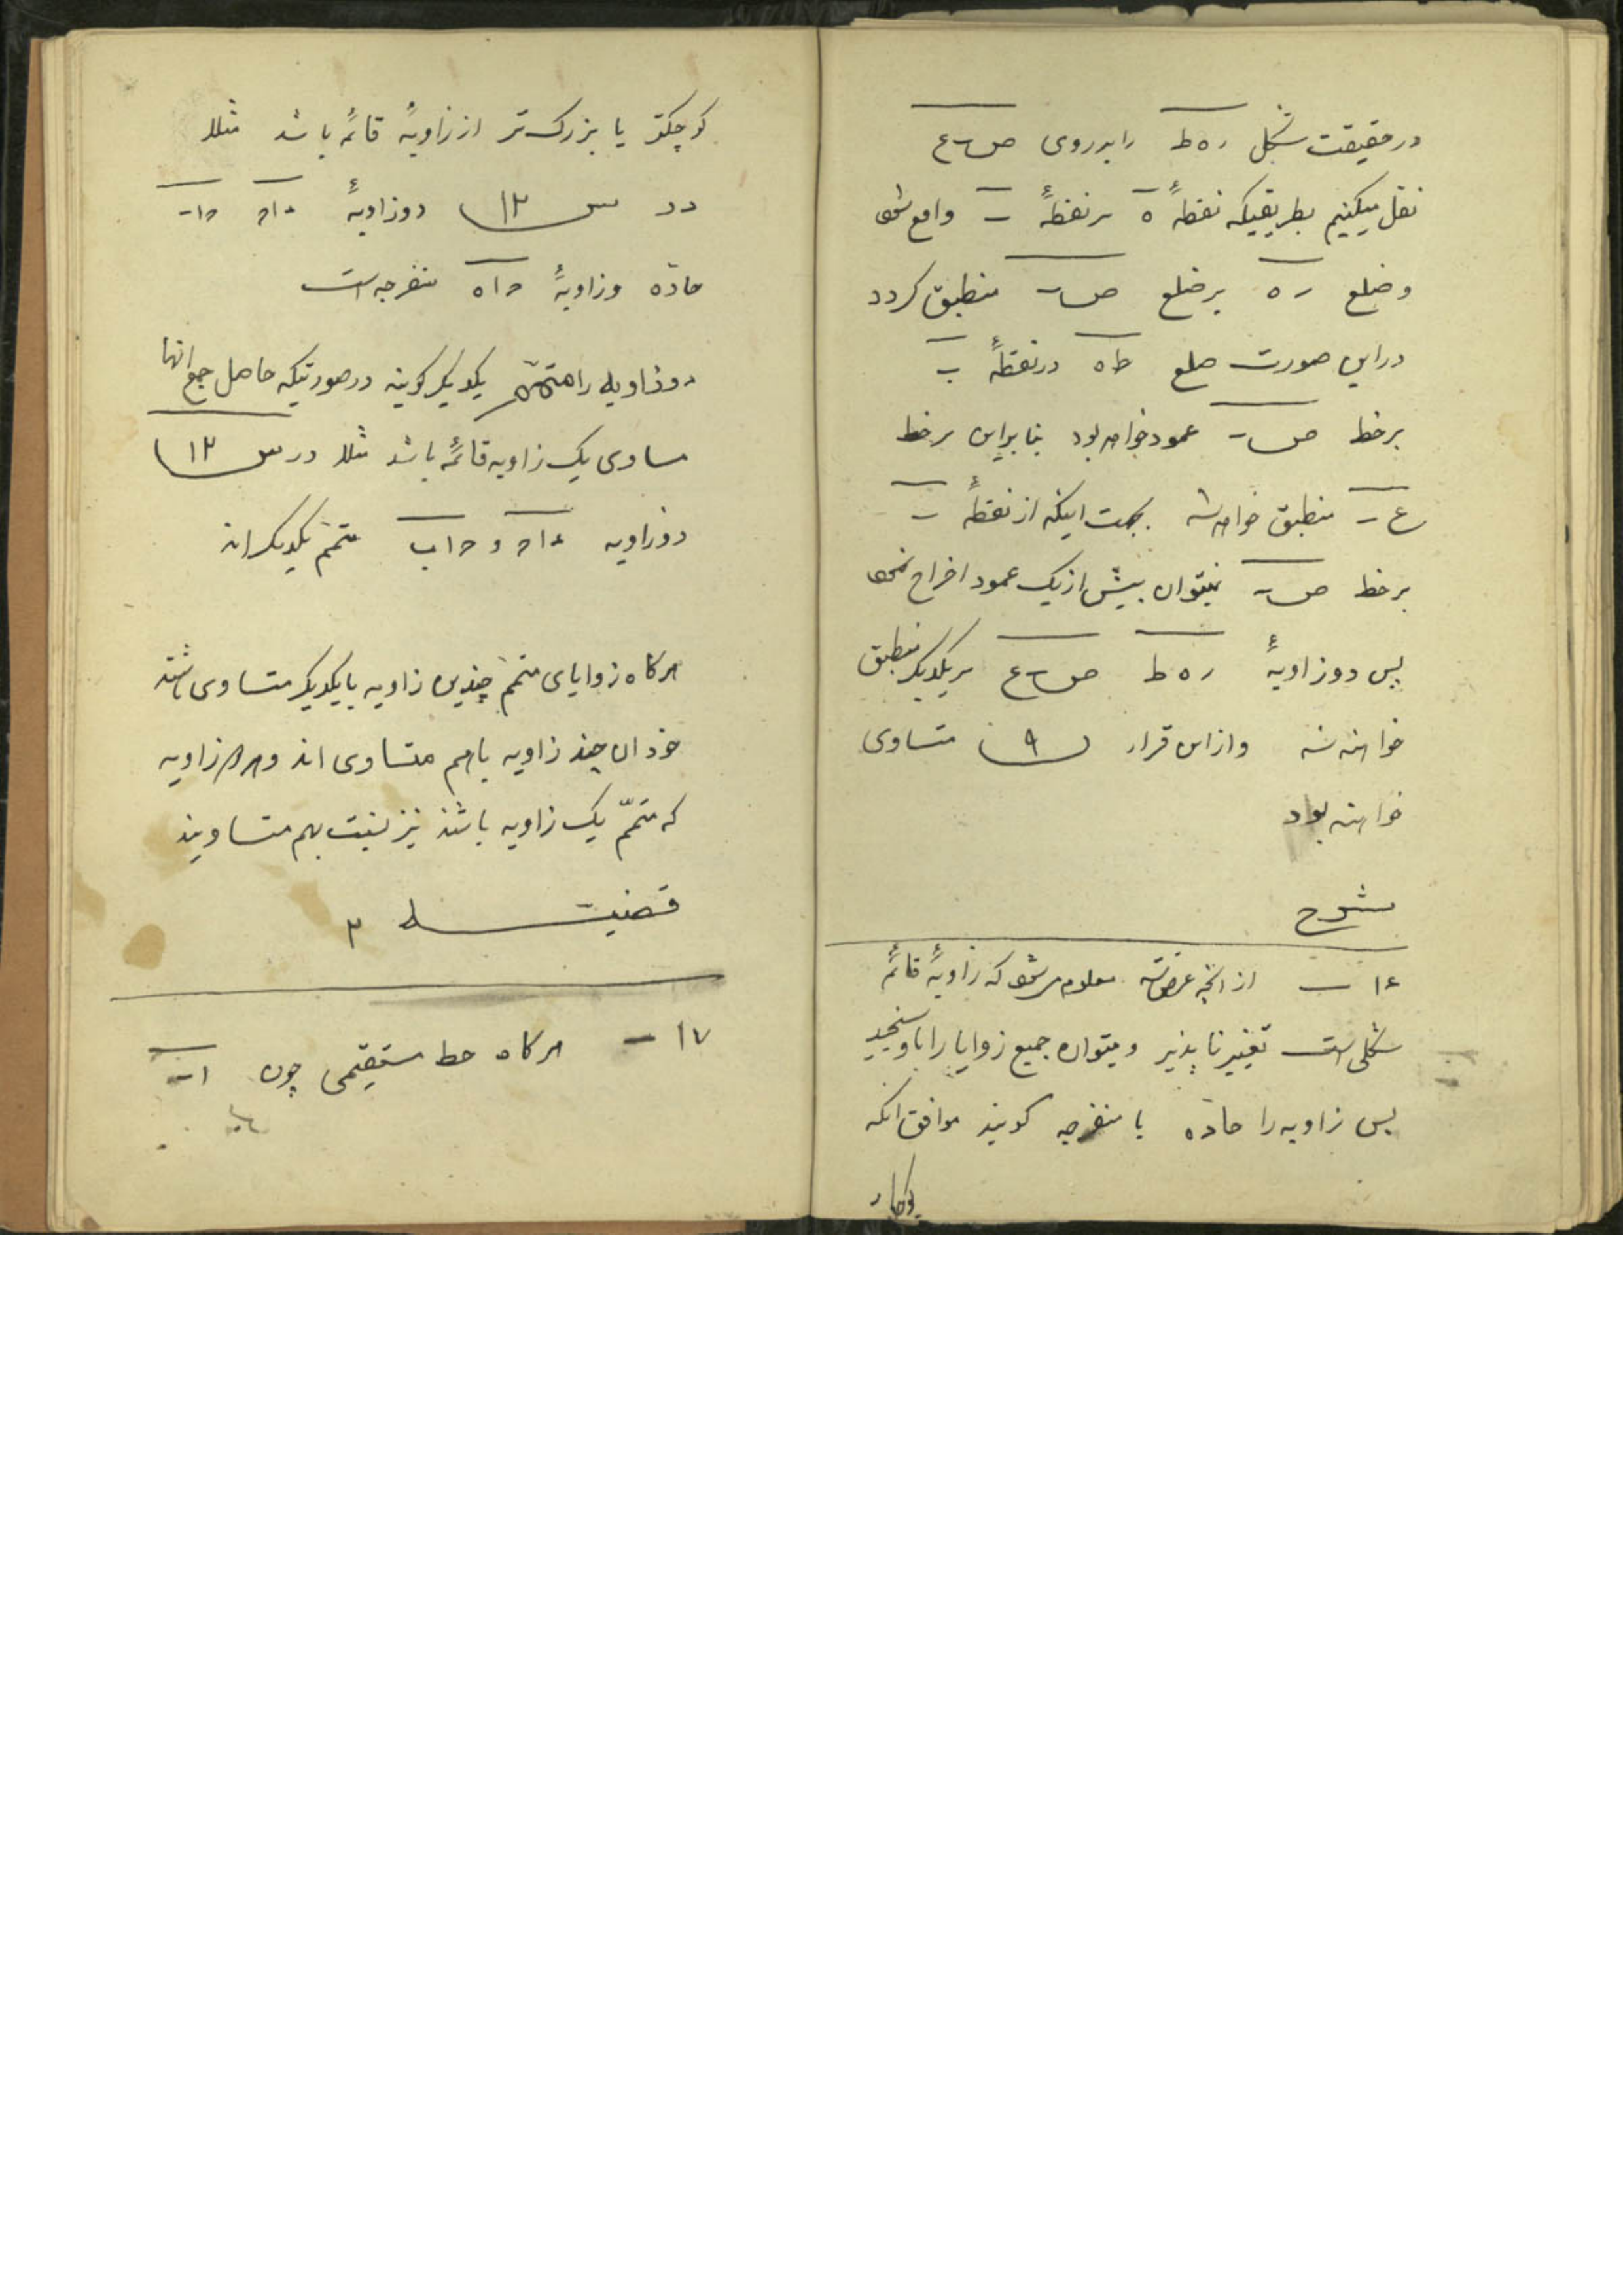 در حقیقت شکل ره ط را بر روی ص ب ع
نقل میکنیم بطریقیکه نقطهٔ ه بر نقطهٔ ب واقع شود
و ضلع ره بر ضلع ص ب منطبق کردد
در این صورت ضلع ط ه در نقطهٔ ب
بر خط ص ب عمود خواهد بود بنابراین بر خط
ع ب منطبق خواهد شد بجهت اینکه از نقطهٔ ب
بر خط ص ب نمیتوان بیش از یک عمود اخراج نمود
پس دو زاویهٔ ره ط ص ب ع بر یکدیکر منطبق
خواهند شد و از این قرار ۹ متساوی
خواهند بود
شرح
۱۶ — از آنچه عرض شد معلوم میشود که زاویهٔ قائمه
شکلی است تغییر ناپذیر و میتوان جمیع زوایا را با او سنجید
پس زاویه را حاده یا منفرجه کویند موافق آنکه
کوچکتر یا بزرک تر از زاویهٔ قائمه باشد مثلا
در س ۱۲ دو زاویهٔ
حاده و زاویهٔ ح ا ه منفرجه است
دو زاویه را متمّم یکدیکر کویند در صورتیکه حاصل جمع آنها
مساوی یک زاویه قائمه باشد مثلا در س ۱۲
دو زاویه و ح ا ب متمّم یکدیکراند
هرکاه زوایای متمّم چندین زاویه با یکدیکر متساوی باشند
خود آن چند زاویه با هم متساوی اند و هر زاویه
که متمّم یک زاویه باشند نیز نسبت بهم متساویند
قضیه ۳
۱۷ — هرکاه خط مستقیمی چون ا ب